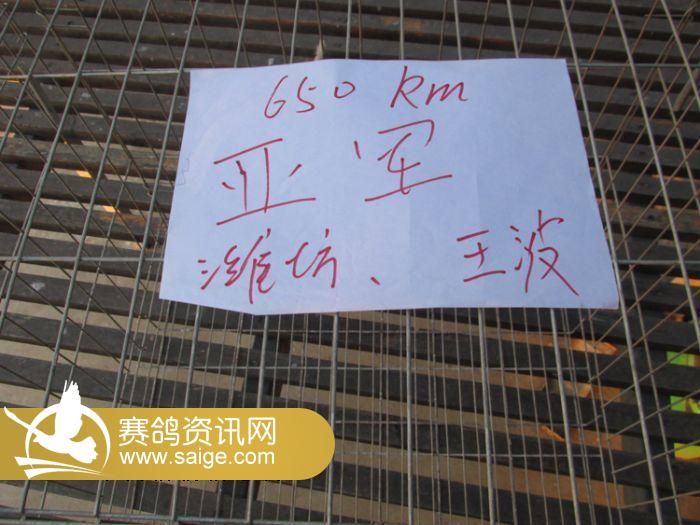 650 Km
亚军
潍坊、王波
赛鸽资讯网
www.saige.com